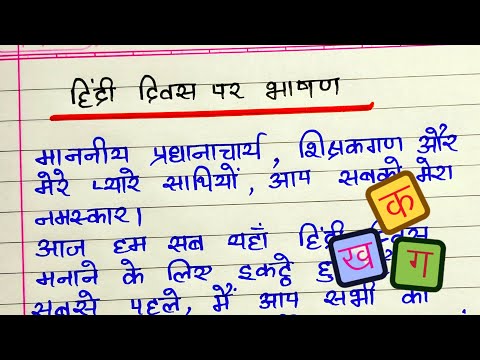 हिंदी दिवस पर भाषण
माननीय प्रधानाचार्य, शिक्षकगण और
मेरे प्यारे साथियों, आप सबको मेरा
नमस्कार।
क
आज हम सब यहाँ हिंदी
ख
ग
मनाने के लिए इकट्ठे
सबसे पहले, मैं आप सभी का